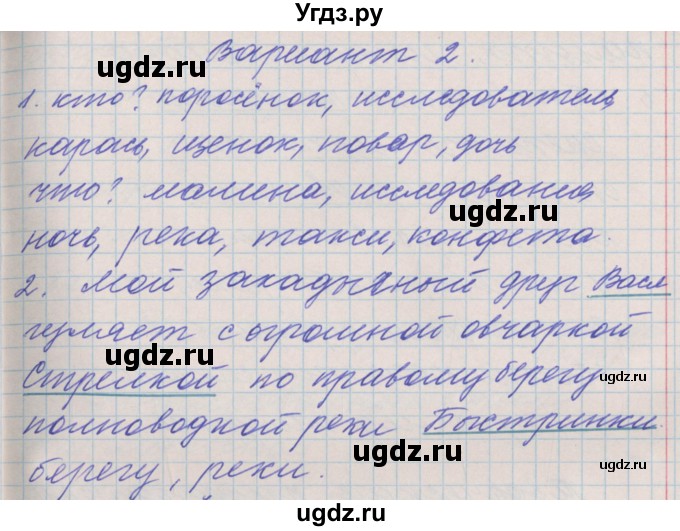 Угдз.ру
Вариант 2.
1. кто? поросёнок, исследователь,
карась, щенок, повар, дочь
что? малина, исследования,
ночь, река, такси, конфета.
2. Мой закадычный друг Вася
гуляет с огромной овчаркой
Стрелкой по правому берегу
полноводной реки Быстринки.
берегу, реки.
ugdz.ru
ugdz.ru
ugdz.ru
ugdz.ru
ugdz.ru
ugdz.ru
ugdz.ru
ugdz.ru
ugdz.ru
ugdz.ru
ugdz.ru